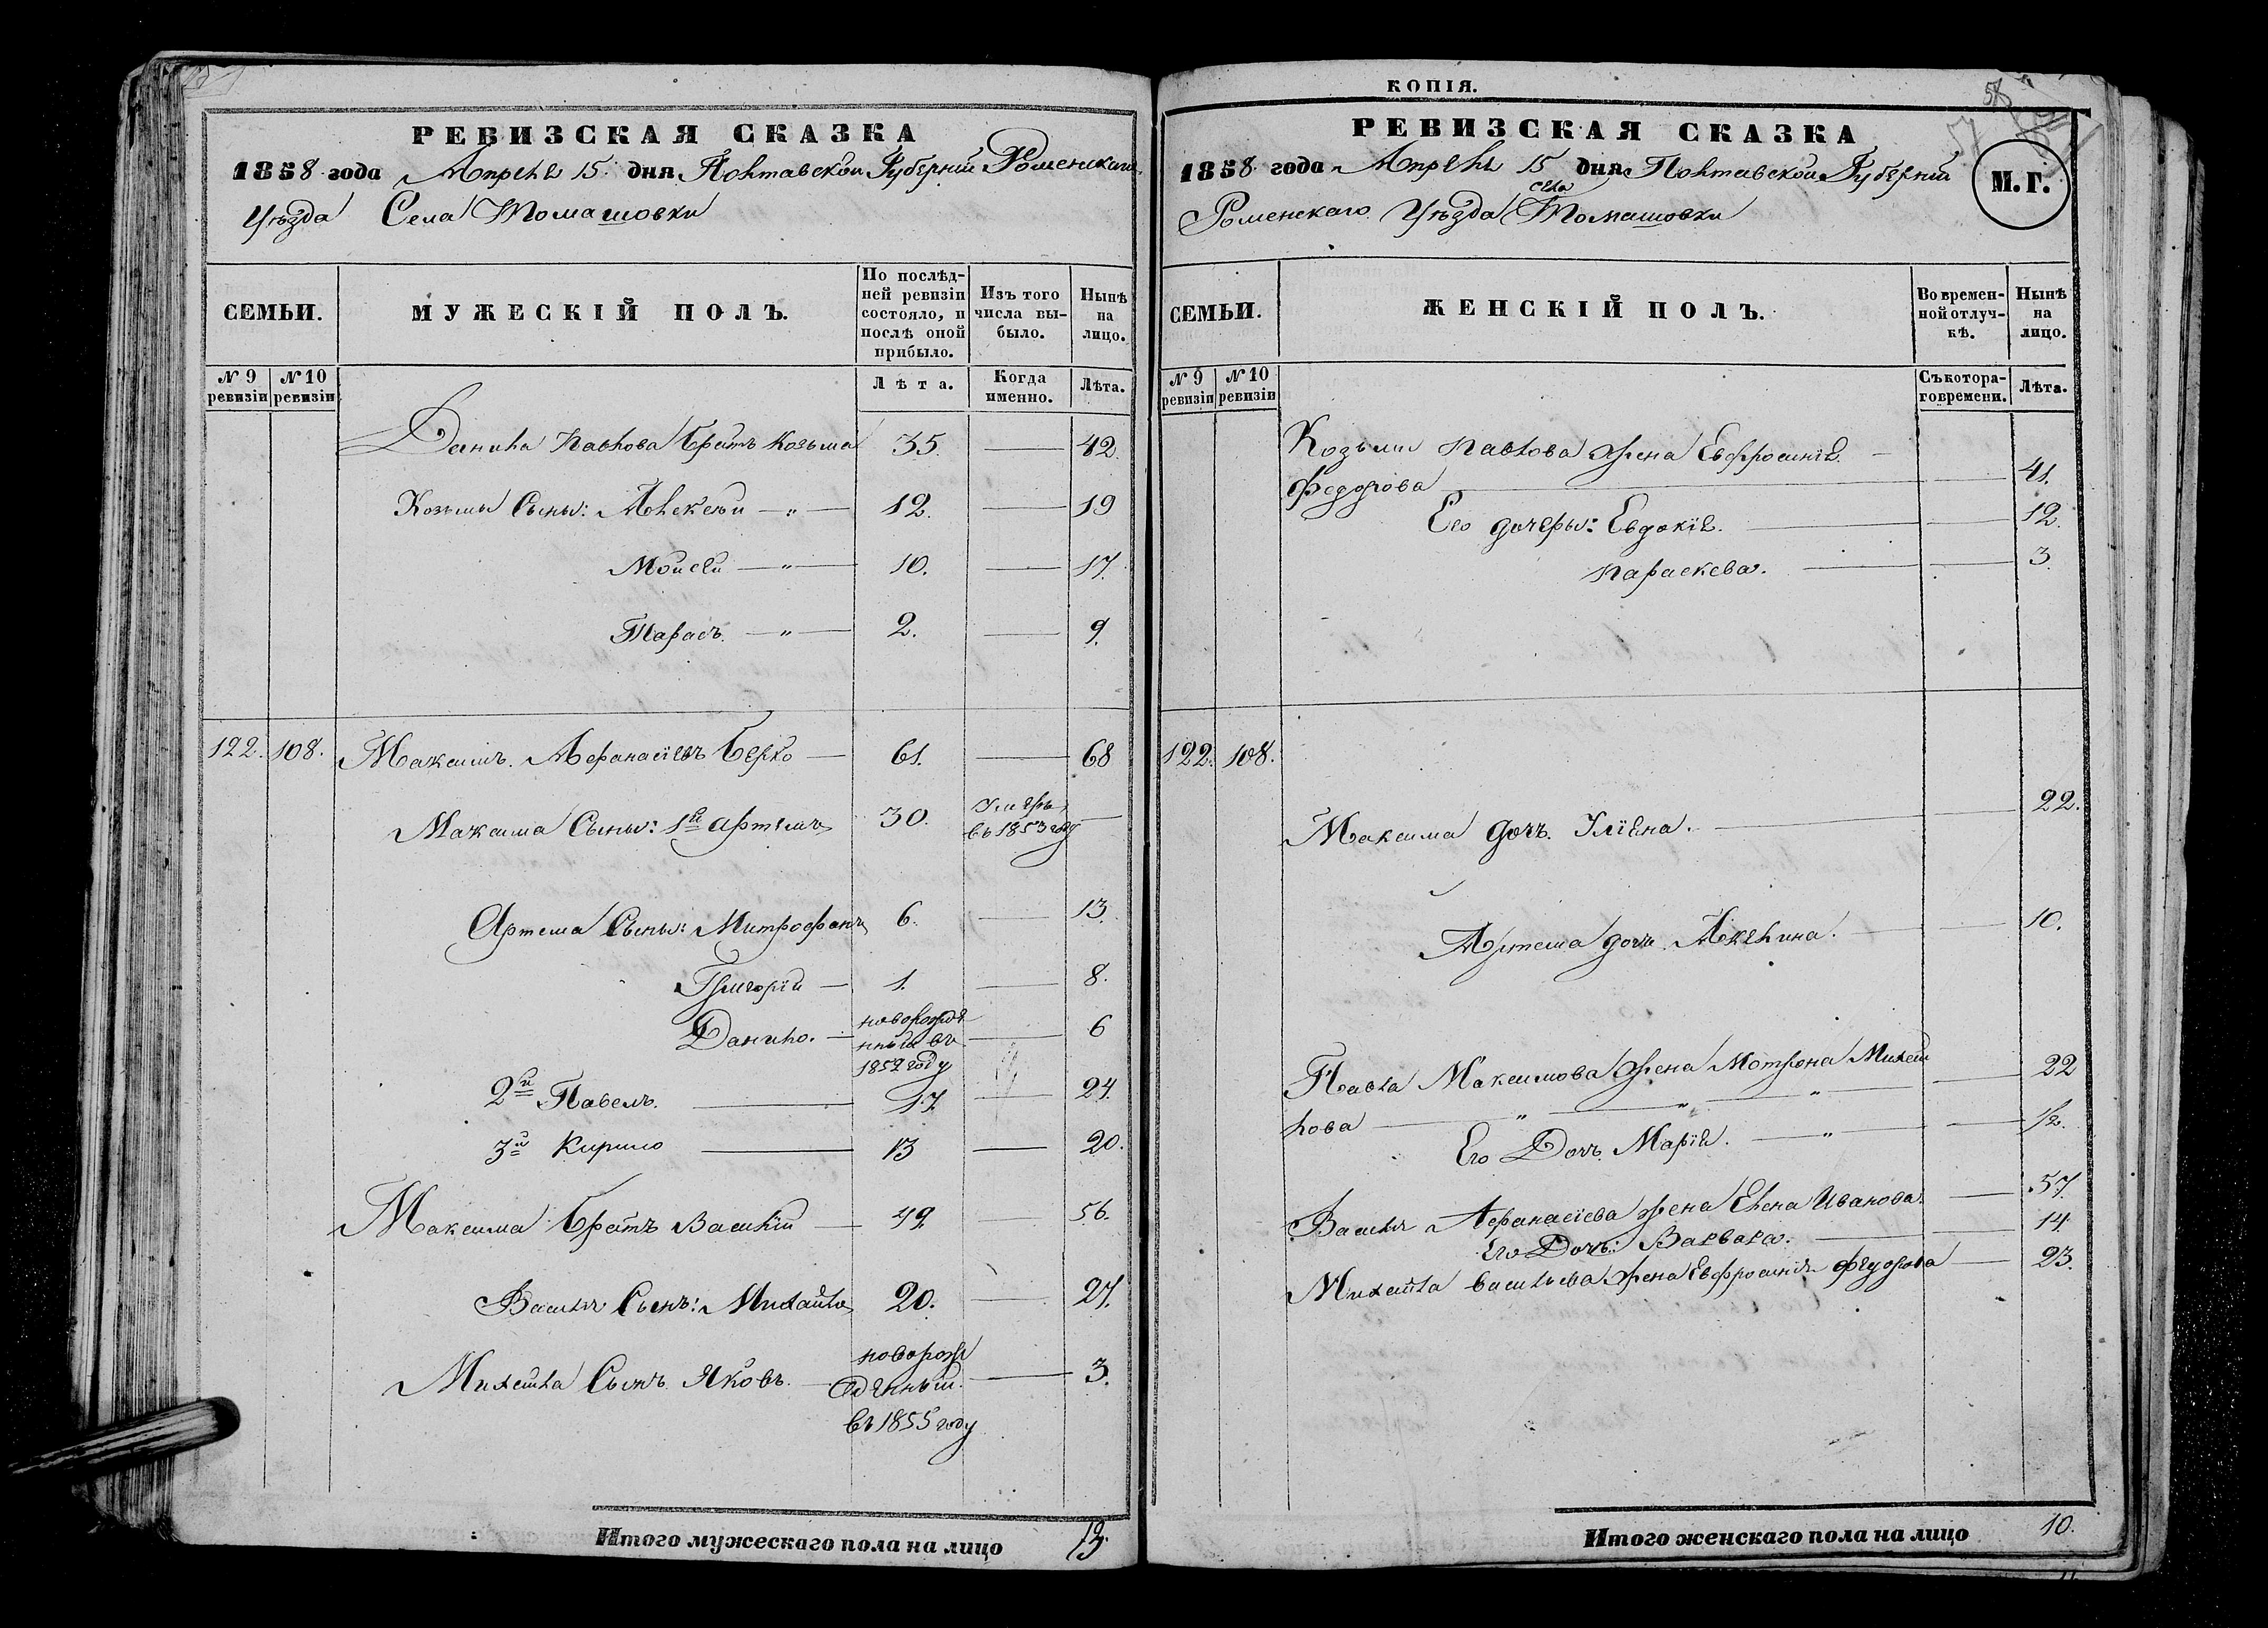 РЕВИЗСКАЯ СКАЗКА
1858 года Апреля 15 дня Полтавской Губернии Роменскаго
Уѣзда Села Томашовки
СЕМЬИ.
МУЖЕСКІЙ ПОЛЪ.
По послѣд-
ней ревизіи
состояло, и
послѣ оной
прибыло.
Изъ того
числа вы-
было.
Нынѣ
на
лицо.
№ 9
ревизіи
№ 10
ревизіи
Лѣта.
Когда
именно.
Лѣта.
Данила Павлова братъ Козьма 35. 42.
Козьмы Сыны: Алексѣй — „ — 12. 19
Мойсей — „ — 10. 17.
Тарасъ. — „ — 2. 9.
122. 108. Максимъ Афанасіевъ Берко — 61. 68
Максима Сыны: 1й Артемъ 30. умеръ
въ 1853 году
Артема Сыны: Митрофанъ 6. 13.
Григорій — 1. 8.
Данило. — новорожде
нный въ
1852 году 6
2й Павелъ. 17. 24.
3й Кирило 13 20.
Максима братъ Василій — 49. 56.
Василя Сынъ: Михайло 20. 27.
Михайла Сынъ Яковъ. новорож
денный
въ 1855 году 3.
Итого мужескаго пола на лицо 13.
КОПІЯ.
58
57
РЕВИЗСКАЯ СКАЗКА
1858 года Апреля 15 дня Полтавской Губерніи
Роменскаго Уѣзда села Томашовки
М.Г.
СЕМЬИ.
ЖЕНСКІЙ ПОЛЪ.
Во времен-
ной отлуч-
кѣ.
Нынѣ
на
лицо.
№ 9
ревизіи
№ 10
ревизіи
Съ котора-
го времени.
Лѣта.
Козьмы Павлова жена Евфросиніе
Федорова 41.
Его дочеры: Евдокіе. 12.
Параскева. 3.
122. 108.
Максима дочъ Уліена. 22.
Артема дочъ Акелина. 10.
Павла Максимова жена Мотрона Михай
лова — „ — „ — „ 22
Его Дочъ Маріе. — „ — 1/2.
Василя Афанасіева жена Елена Иванова. 57.
Его Дочъ: Варвара. 14.
Михайла Васильева жена Евфросиніе Федорова 23.
Итого женскаго пола на лицо 10.